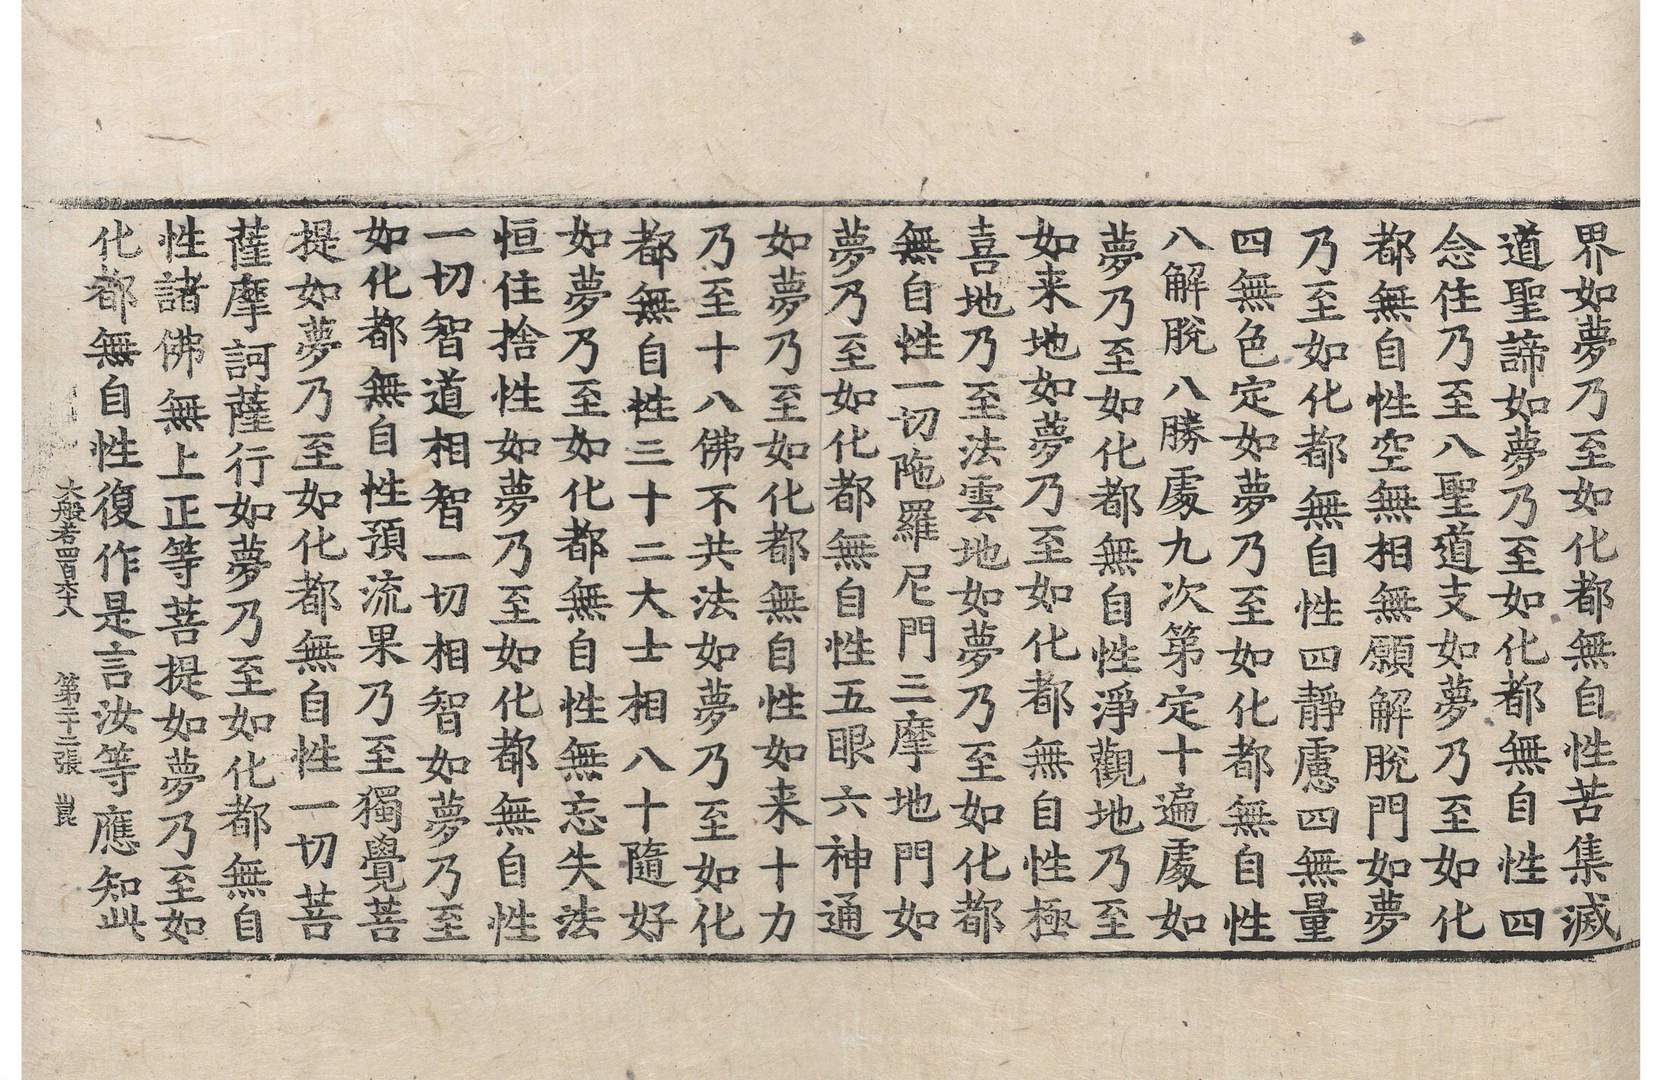 界如夢乃至如化都無自性苦集滅
道聖諦如夢乃至如化都無自性四
念住乃至八聖道支如夢乃至如化
都無自性空無相無願解脫門如夢
乃至如化都無自性四靜慮四無量
四無色定如夢乃至如化都無自性
八解脫八勝處九次第定十遍處如
夢乃至如化都無自性淨觀地乃至
如来地如夢乃至如化都無自性極
喜地乃至法雲地如夢乃至如化都
無自性一切陁羅尼門三摩地門如
夢乃至如化都無自性五眼六神通
如夢乃至如化都無自性如来十力
乃至十八佛不共法如夢乃至如化
都無自性三十二大士相八十隨好
如夢乃至如化都無自性無忘失法
恒住捨性如夢乃至如化都無自性
一切智道相智一切相智如夢乃至
如化都無自性預流果乃至獨覺菩
提如夢乃至如化都無自性一切菩
薩摩訶薩行如夢乃至如化都無自
性諸佛無上正等菩提如夢乃至如
化都無自性復作是言汝等應知此
大般若四百六十八 第二十二張 崑